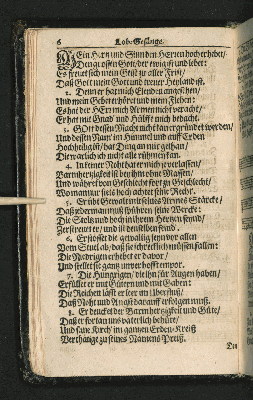 6 Lob-Gesänge.
MEin Hertz und Sinn den HErren hoch erhebet/
Den grossen Gott/ der ewig ist und lebet:
Es freuet sich mein Geist zu aller Frist/
Daß Gott mein Gott und treuer Heyland ist.
2. Denn er hat mich Elenden angesehen/
Und mein Gebet erhört und mein Flehen:
Es hat der HErr mich Armen nicht veracht/
Er hat mit Gnad' und Hülffe mich bedacht.
3. GOtt dessen Macht nicht kan ergründet werden/
Und dessen Nam' im Himmel und auff Erden
Hochheilig ist/ hat Ding an mir gethan/
Die warlich ich nicht alle rühmen kan.
4. In keiner Noht hat er mich verlassen/
Barmhertzigkeit ist bey ihm ohn Massen/
Und währet von Geschlecht fort zu Geschlecht/
Wo man nur stets hoch achtet seine Recht.
5. Er übt Gewalt mit seines Armes Stärcke/
Daß jederman muß rühmen seine Werck:
Die Stoltz und hoch in ihrem Hertzen seynd/
Zerstreuet er/ und ist denselben feind.
6. Er stösset die gewaltig seyn vor allen
Vom Stuel ab/ daß sie schrecklich müssen fallen:
Die Niedrigen erhebet er dabey/
Und stellet sie gantz unverhofft empor.
7. Die Hungrigen/ die ihn für Augen haben/
Erfüllet er mit Gütern und mit Gaben:
Die Reichen lässt er leer an Überfluß/
Daß Noht und Angst darauff erfolgen muß.
8. Er dencket der Barmhertzigkeit und Güte/
Daß er fortan uns väterlich behüte/
Und seine Kirch' im gantzen Erden-Kreiß
Verthätige zu seines Namens Preiß.
Der